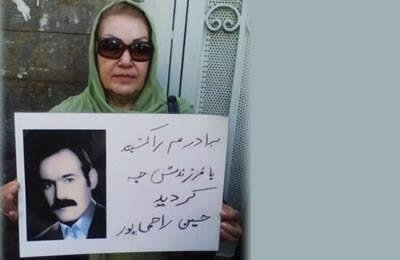 برادرم را کشتند
با فرزندش چه
کردید
حسین راحمی‌پور